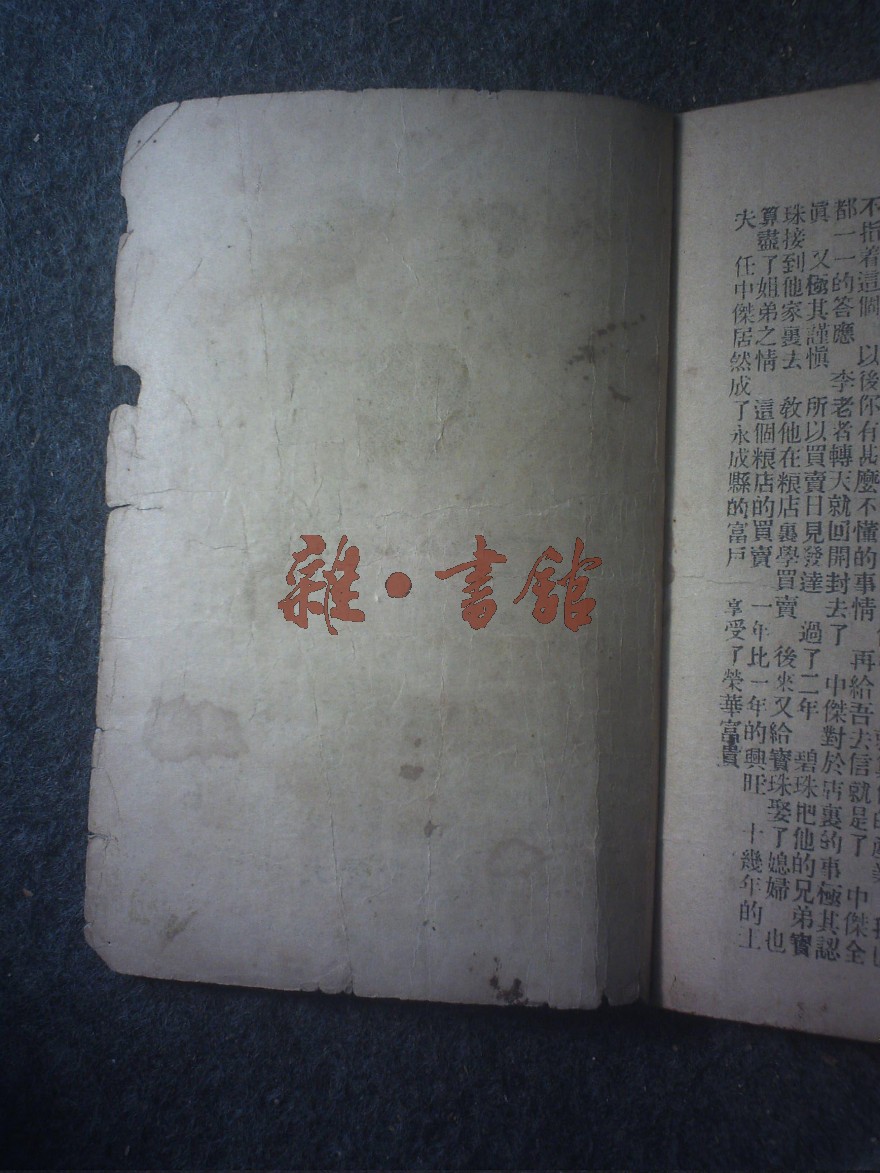 不指着這個 以後你有甚麼不懂的事情 再給吾去信就是了 中傑全
都一一的答應 李老者轉天就回開封去了 中傑對於店裏的事極其認
眞 又極其謹愼 所以買賣日見發達 過了二年 碧珠把他的兄弟寶
珠接到他家裏去 敎他在粮店裏學買賣 後來又給寶珠娶了媳婦 也
算盡了姐弟之情 這個粮店的買賣 一年比一年的興旺 十幾年的工
夫 任中傑居然成了永成縣的富戶 享受了榮華富貴
雜·書館